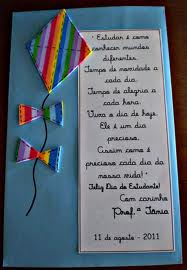 " Estudar é como
conhecer mundos
diferentes.
Tempo de novidade a
cada dia.
Tempo de alegria a
cada hora.
Viva o dia de hoje.
Ele é um dia
precioso.
Assim como é
precioso cada dia da
nossa vida!"
Feliz Dia do Estudante!
Com carinho
Prof.ª Tânia
11 de agosto - 2011